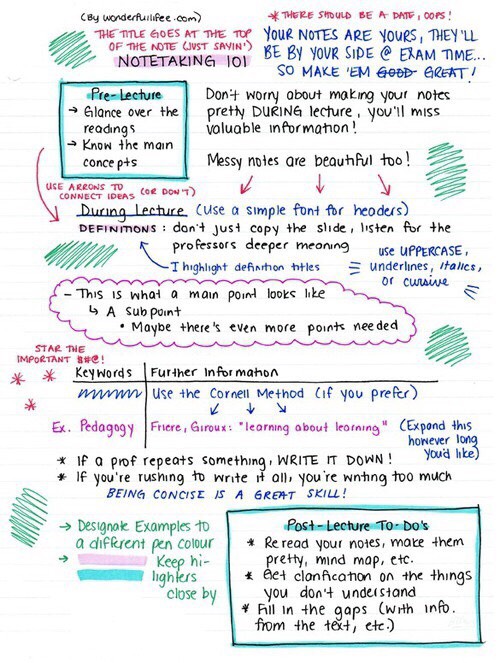 (By wonderfullifee.com)
* THERE SHOULD BE A DATE, OOPS!
THE TITLE GOES AT THE TOP
OF THE NOTE (JUST SAYIN')
NOTETAKING 101
YOUR NOTES ARE YOURS, THEY'LL
BE BY YOUR SIDE @ EXAM TIME...
SO MAKE 'EM GOOD GREAT!
Pre-Lecture
→ Glance over the
readings
→ Know the main
concepts
Don't worry about making your notes
pretty DURING lecture, you'll miss
valuable information!
Messy notes are beautiful too!
USE ARROWS TO
CONNECT IDEAS (OR DON'T)
During Lecture (Use a simple font for headers)
DEFINITIONS: don't just copy the slide, listen for the
professors deeper meaning
I highlight definition titles
use UPPERCASE,
underlines, italics,
or cursive
- This is what a main point looks like
↳ A subpoint
• Maybe there's even more points needed
STAR THE
IMPORTANT $#@!
Keywords Further Information
Use the Cornell Method (if you prefer)
Ex. Pedagogy Friere, Giroux: "learning about learning"
(Expand this
however long
you'd like)
* If a prof repeats something, WRITE IT DOWN!
* If you're rushing to write it all, you're writing too much
BEING CONCISE IS A GREAT SKILL!
→ Designate Examples to
a different pen colour
→ Keep hi-
lighters
close by
Post-Lecture To-Do's
* Reread your notes, make them
pretty, mind map, etc.
* Get clarification on the things
you don't understand
* Fill in the gaps (with info.
from the text, etc.)